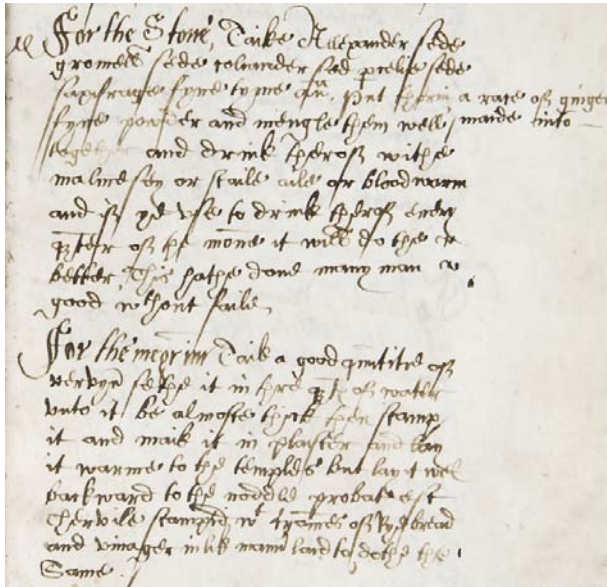 For the Stone, Taike Allexander sede
gromell sede coliander sed pcelie sede
saxifrage fyne tyme an. put therin a race off ginger
fyne powder and mengle them well maide into
together and drink theroff withe
malmesey or staile aile or bloodwarm
and if ye vse to drink theroff every
qter off the mone it will do the
better, This hathe done many man
good wthout faile
For the megrim Taik a good quantitie off
vervyn sethe it in thre off water
vnto it be almoste thick then stamp
it and maik it in plaster and lay
it warme to the temples but lay it wel
backward to the noddle probat est
Chervile stamped wt off Rye bread
and vinager in lik maner laid to dothe the
Same.